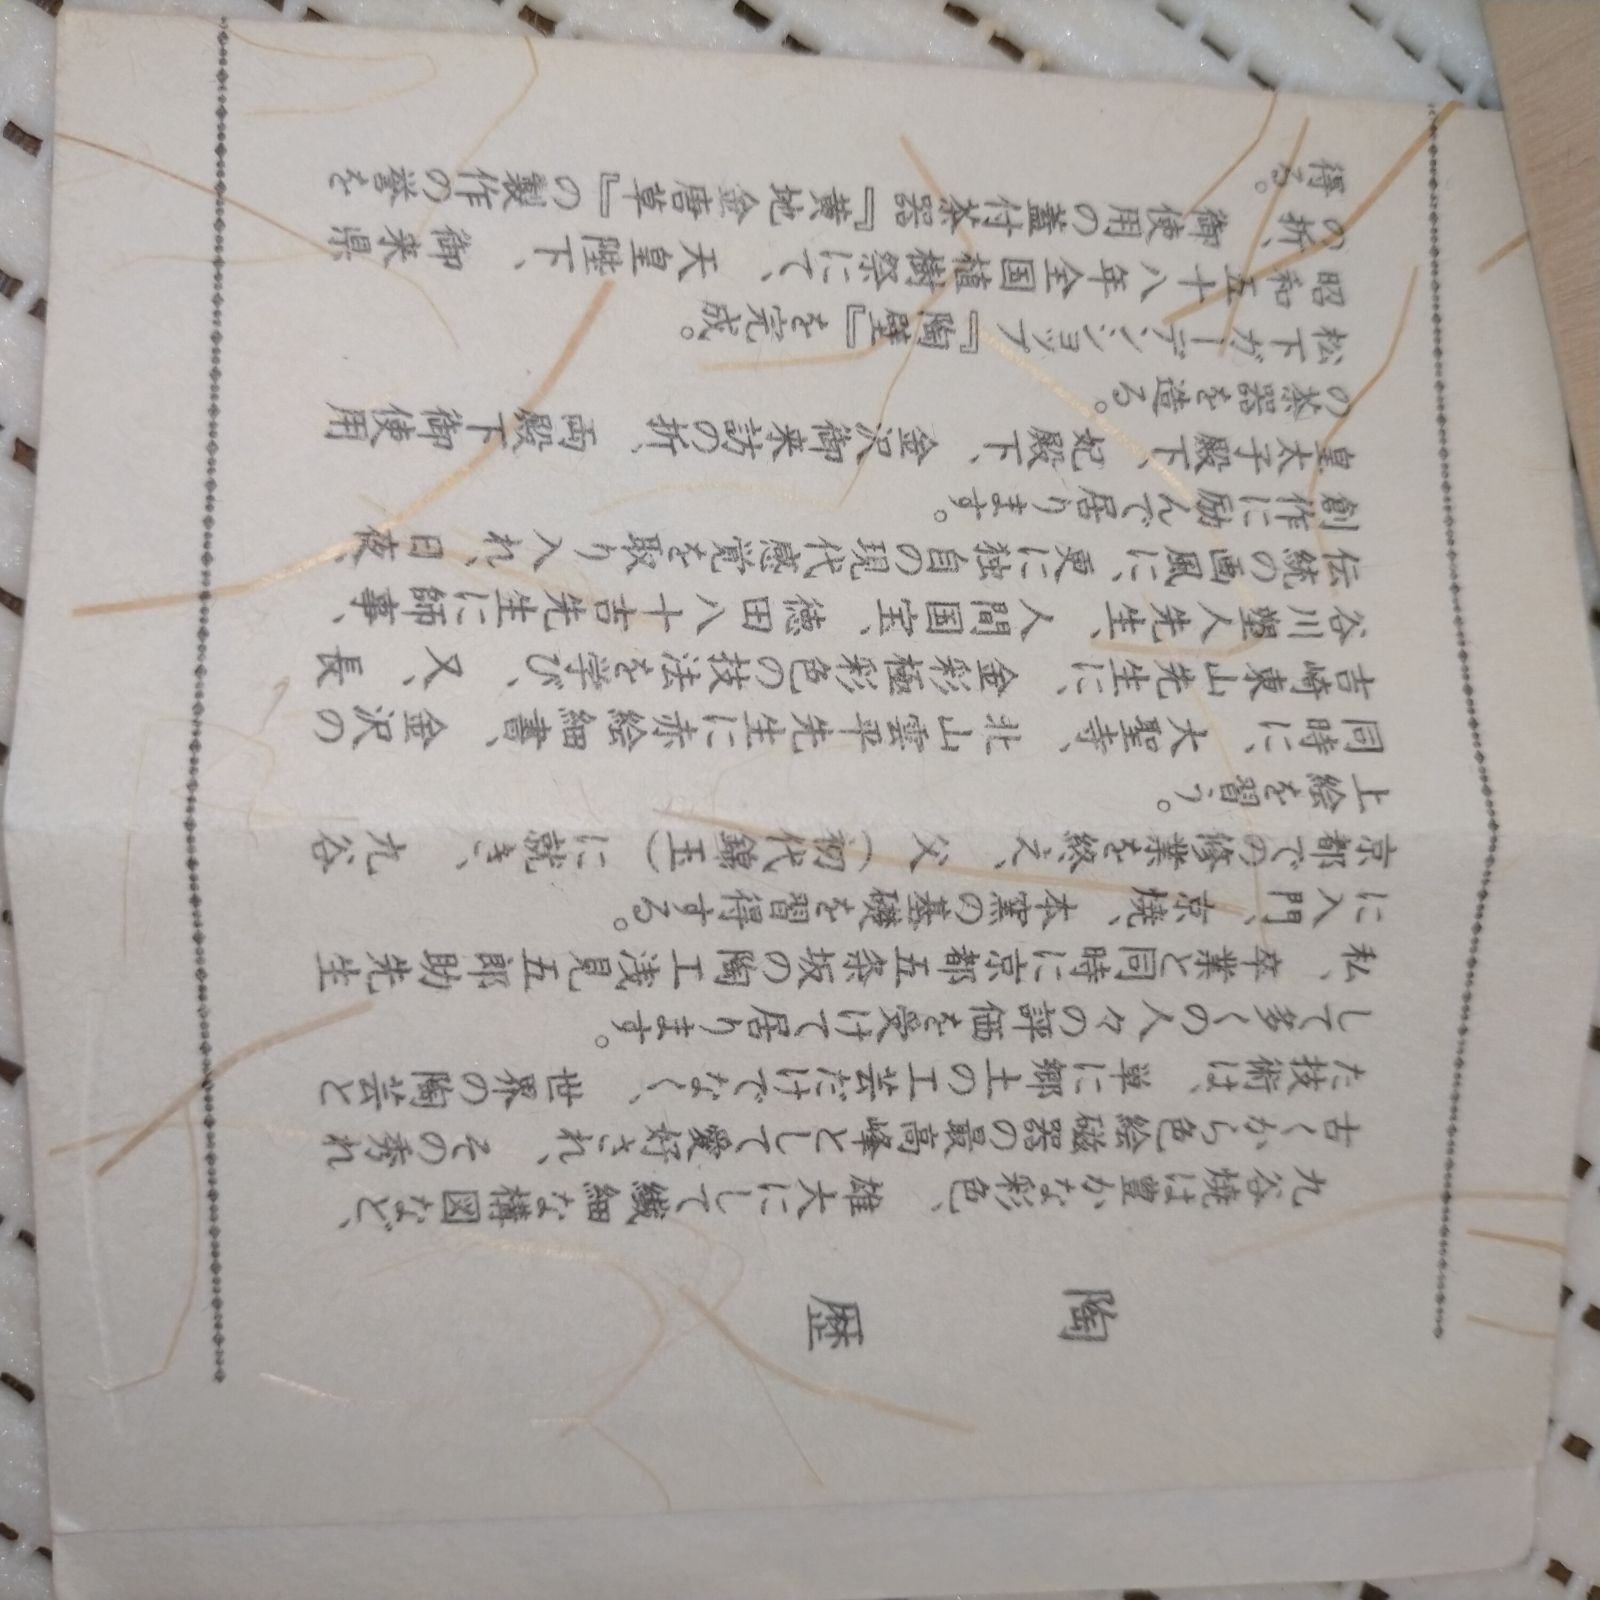 陶歴
九谷焼は豊かな彩色、雄大にして繊細な構図など、
古くから色絵磁器の最高峰として愛好され、その秀れ
た技術は、単に郷土の工芸だけでなく、世界の陶芸と
して多くの人々の評価を受けて居ります。
私、卒業と同時に京都五条坂の陶工浅見五郎助先生
に入門、京焼、本窯の基礎を習得する。
京都での修業を終え、父（初代錦玉）に就き、九谷
上絵を習う。
同時に、大聖寺、北山雲平先生に赤絵細書、金沢の
吉崎東山先生に、金彩極彩色の技法を学び、又、長
谷川塑人先生、人間国宝、徳田八十吉先生に師事、
伝統の画風に、更に独自の現代感覚を取り入れ、日夜、
創作に励んで居ります。
皇太子殿下、妃殿下、金沢御来訪の折、両殿下御使用
の茶器を造る。
松下ガーデンショップ『陶壁』を完成。
昭和五十八年全国植樹祭にて、天皇陛下、御来県
の折、御使用の蓋付茶器『黄地金唐草』の製作の誉を
得る。